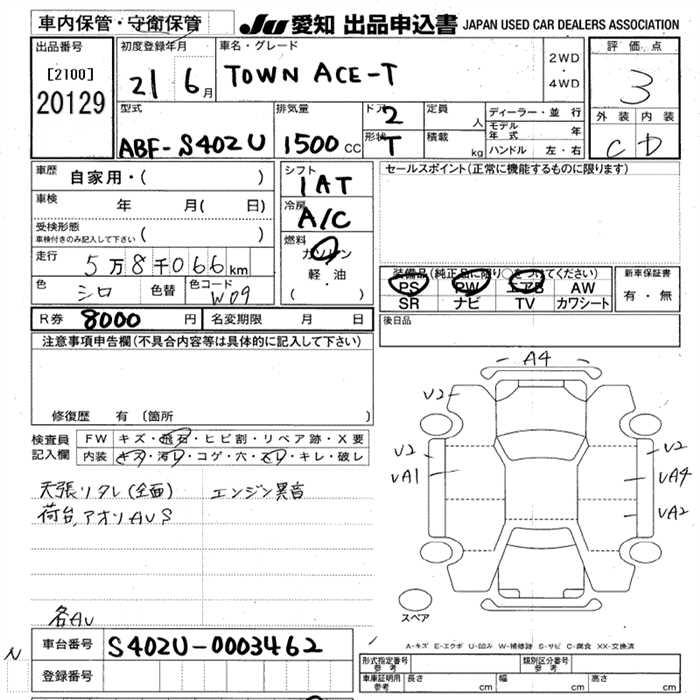 車内保管・守衛保管
JU 愛知 出品申込書 JAPAN USED CAR DEALERS ASSOCIATION
出品番号
[2100]
20129
初度登録年月
21 6月
車名・グレード
TOWN ACE-T
2WD
・
4WD
評価点
3
外装 内装
C D
型式
ABF-S402U
排気量
1500 CC
ドア 2
形状 T
定員 人
積載 kg
ディーラー・並行
モデル年式 年
ハンドル 左・右
車歴
自家用・( )
車検 年 月( 日)
受検形態
車検付きのみ記入して下さい ( )
走行
5万8千066km
色 シロ 色替 色コード W09
シフト
IAT
冷房
A/C
燃料
ガソリン
軽・油
( ・ )
セールスポイント (正常に機能するものに限ります)
装備品(純正品に限り○をつけてください)
PS PW エアB AW
SR ナビ TV カワシート
新車保証書
有・無
R券 8000 円 名変期限 月 日
後日品
注意事項申告欄(不具合内容等は具体的に記入して下さい)
修復歴 有 〔箇所 〕
検査員記入欄
FW キズ・飛石・ヒビ割・リペア跡・X要
内装 キズ・汚レ・コゲ・穴・スレ・キレ・破レ
天張リタレ(全面) エンジン異音
荷台,アオリAUS
各AU
A4
U2
U2
UA1
U2
UA4
UA2
スペア
A-キズ E-エクボ U-凹み W-補修跡 S-サビ C-腐食 XX-交換済
N
車台番号 S402U-0003462
登録番号
形式指定番号 参考
類別区分番号 参考
車庫証明用 参考 長さ cm 幅 cm 高さ cm